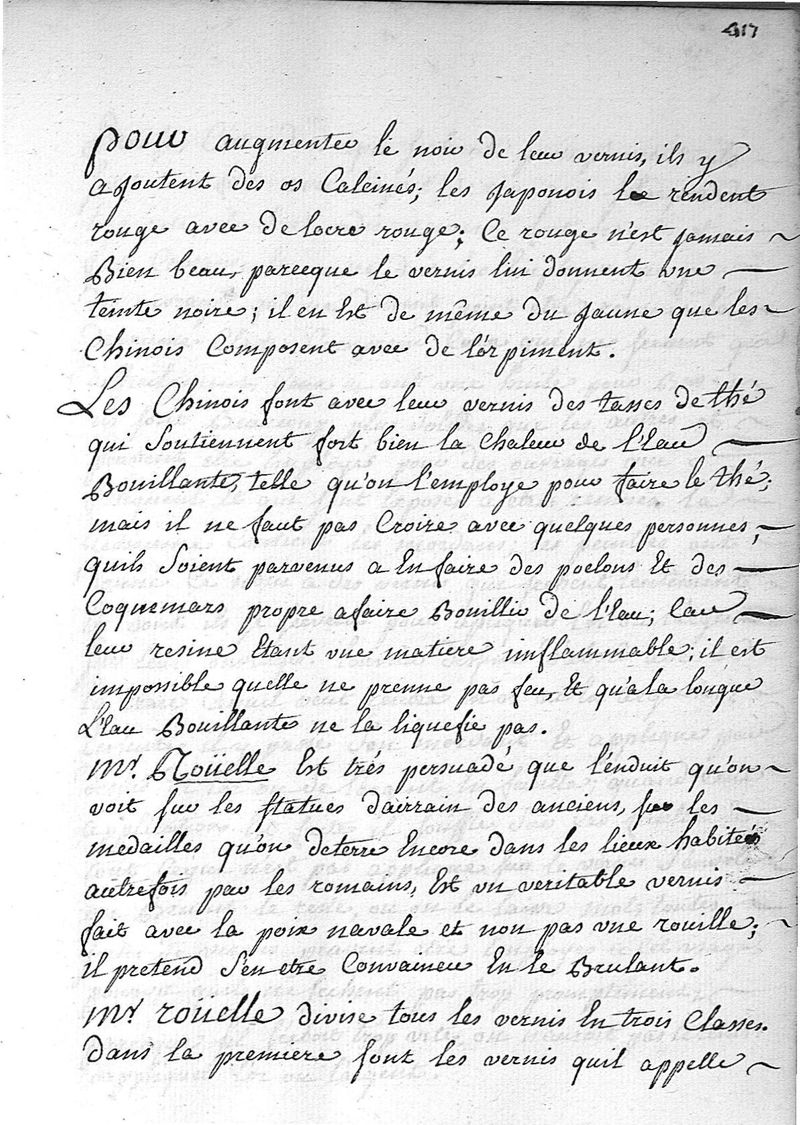 417
pour augmenter le noir de leur vernis, ils y
ajoutent des os Calcinés; les japonois le rendent
rouge avec de locre rouge; Ce rouge n'est jamais
Bien beau, parceque le vernis lui donnent une
teinte noire; il en Est de même du jaune que les
Chinois Composent avec de l'órpiment.
Les Chinois font avec leur vernis des tasses de thé
qui soutiennent fort bien la Chaleur de l'Eau
Bouillante, telle qu'on l'employe pour faire le thé;
mais il ne faut pas Croire avec quelques personnes,
quils soient parvenus a En faire des poelons Et des
Coquemars propre afaire Bouillir de l'Eau; Car
leur resine Etant vne matiere inflammable; il est
impossible quelle ne prenne pas feu, Et qu'ala longue
L'Eau Bouillante ne la liquefie pas.
Mr. Roüelle Est trés persuadé que l'énduit qu'on
voit sur les statues d'airrain des anciens, sur les
medailles qu'on deterre Encore dans les lieux habités
autrefois par les romains, Est vn veritable vernis
fait avec la poix navale et non pas vne rouille;
il pretend s'en etre Convaincu En le Brulant.
Mr roüelle divise tous les vernis En trois Classes.
dans la premiere sont les vernis quil appelle